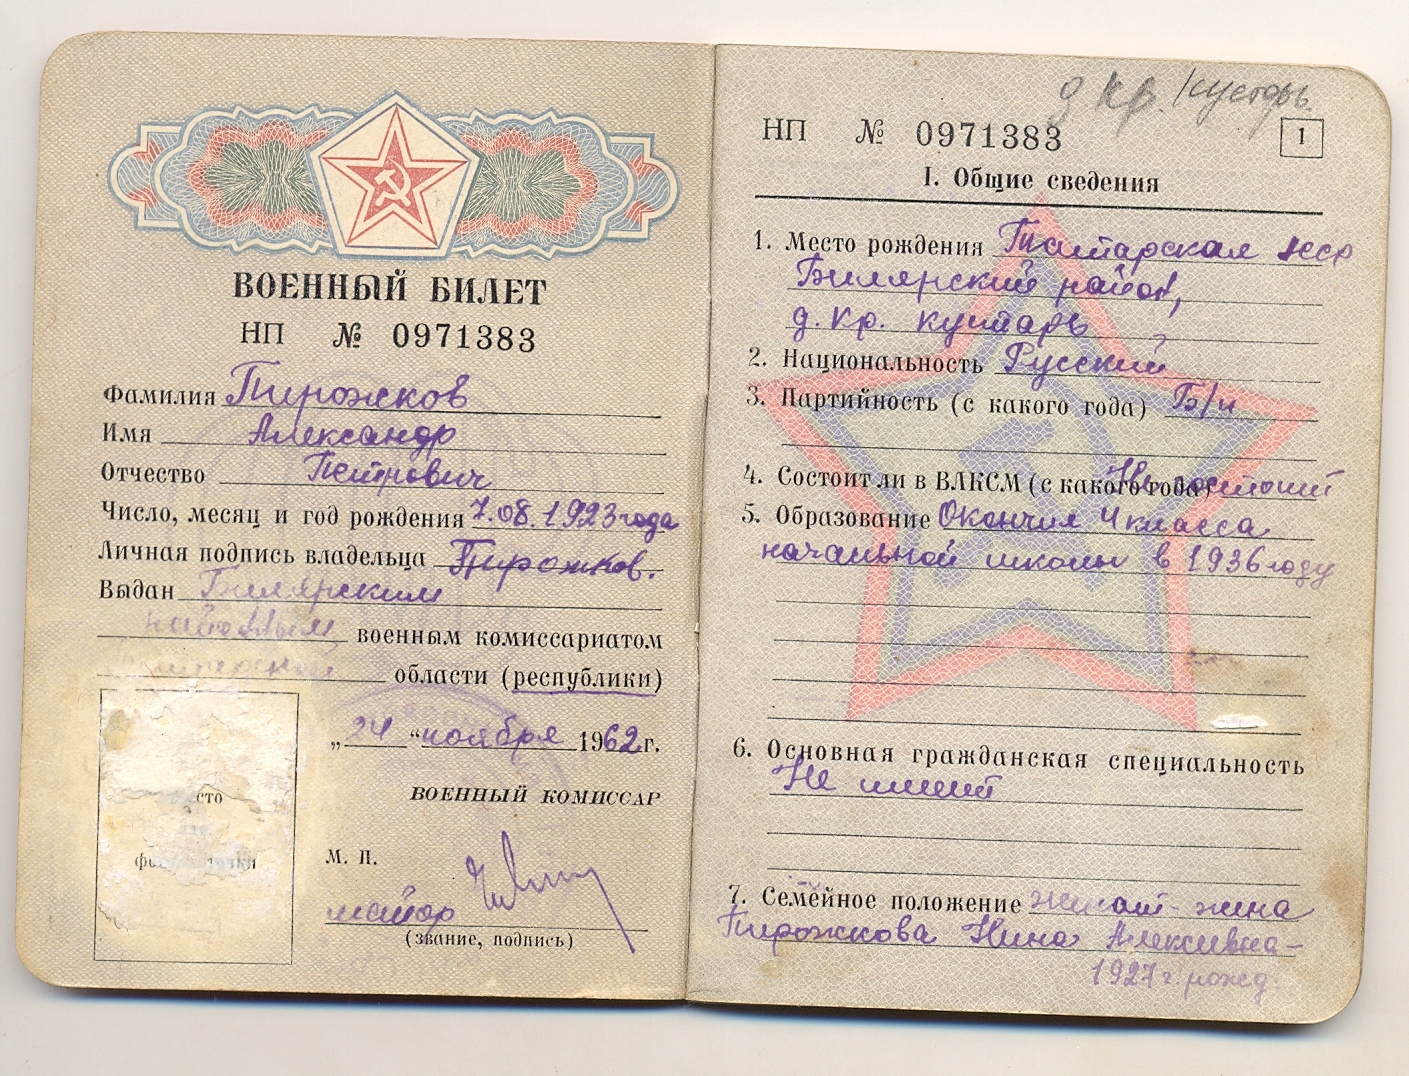 ВОЕННЫЙ БИЛЕТ
НП № 0971383
Фамилия Пирожков
Имя Александр
Отчество Петрович
Число, месяц и год рождения 7.08.1923 года
Личная подпись владельца Пирожков.
Выдан Билярским
районным военным комиссариатом
области (республики)
„24“ ноября 1962 г.
ВОЕННЫЙ КОМИССАР
М. П.
майор
(звание, подпись)
сто
д Кр. Кустарь.
НП № 0971383
1
I. Общие сведения
1. Место рождения Татарская АССР
Билярский район,
д. Кр. кустарь
2. Национальность Русский
3. Партийность (с какого года) Б/п
4. Состоит ли в ВЛКСМ (с какого года) Не состоит
5. Образование Окончил 4 класса
начальной школы в 1936 году
6. Основная гражданская специальность
Не имеет
7. Семейное положение женат - жена
Пирожкова Нина Алексеевна -
1927 г. рожд.